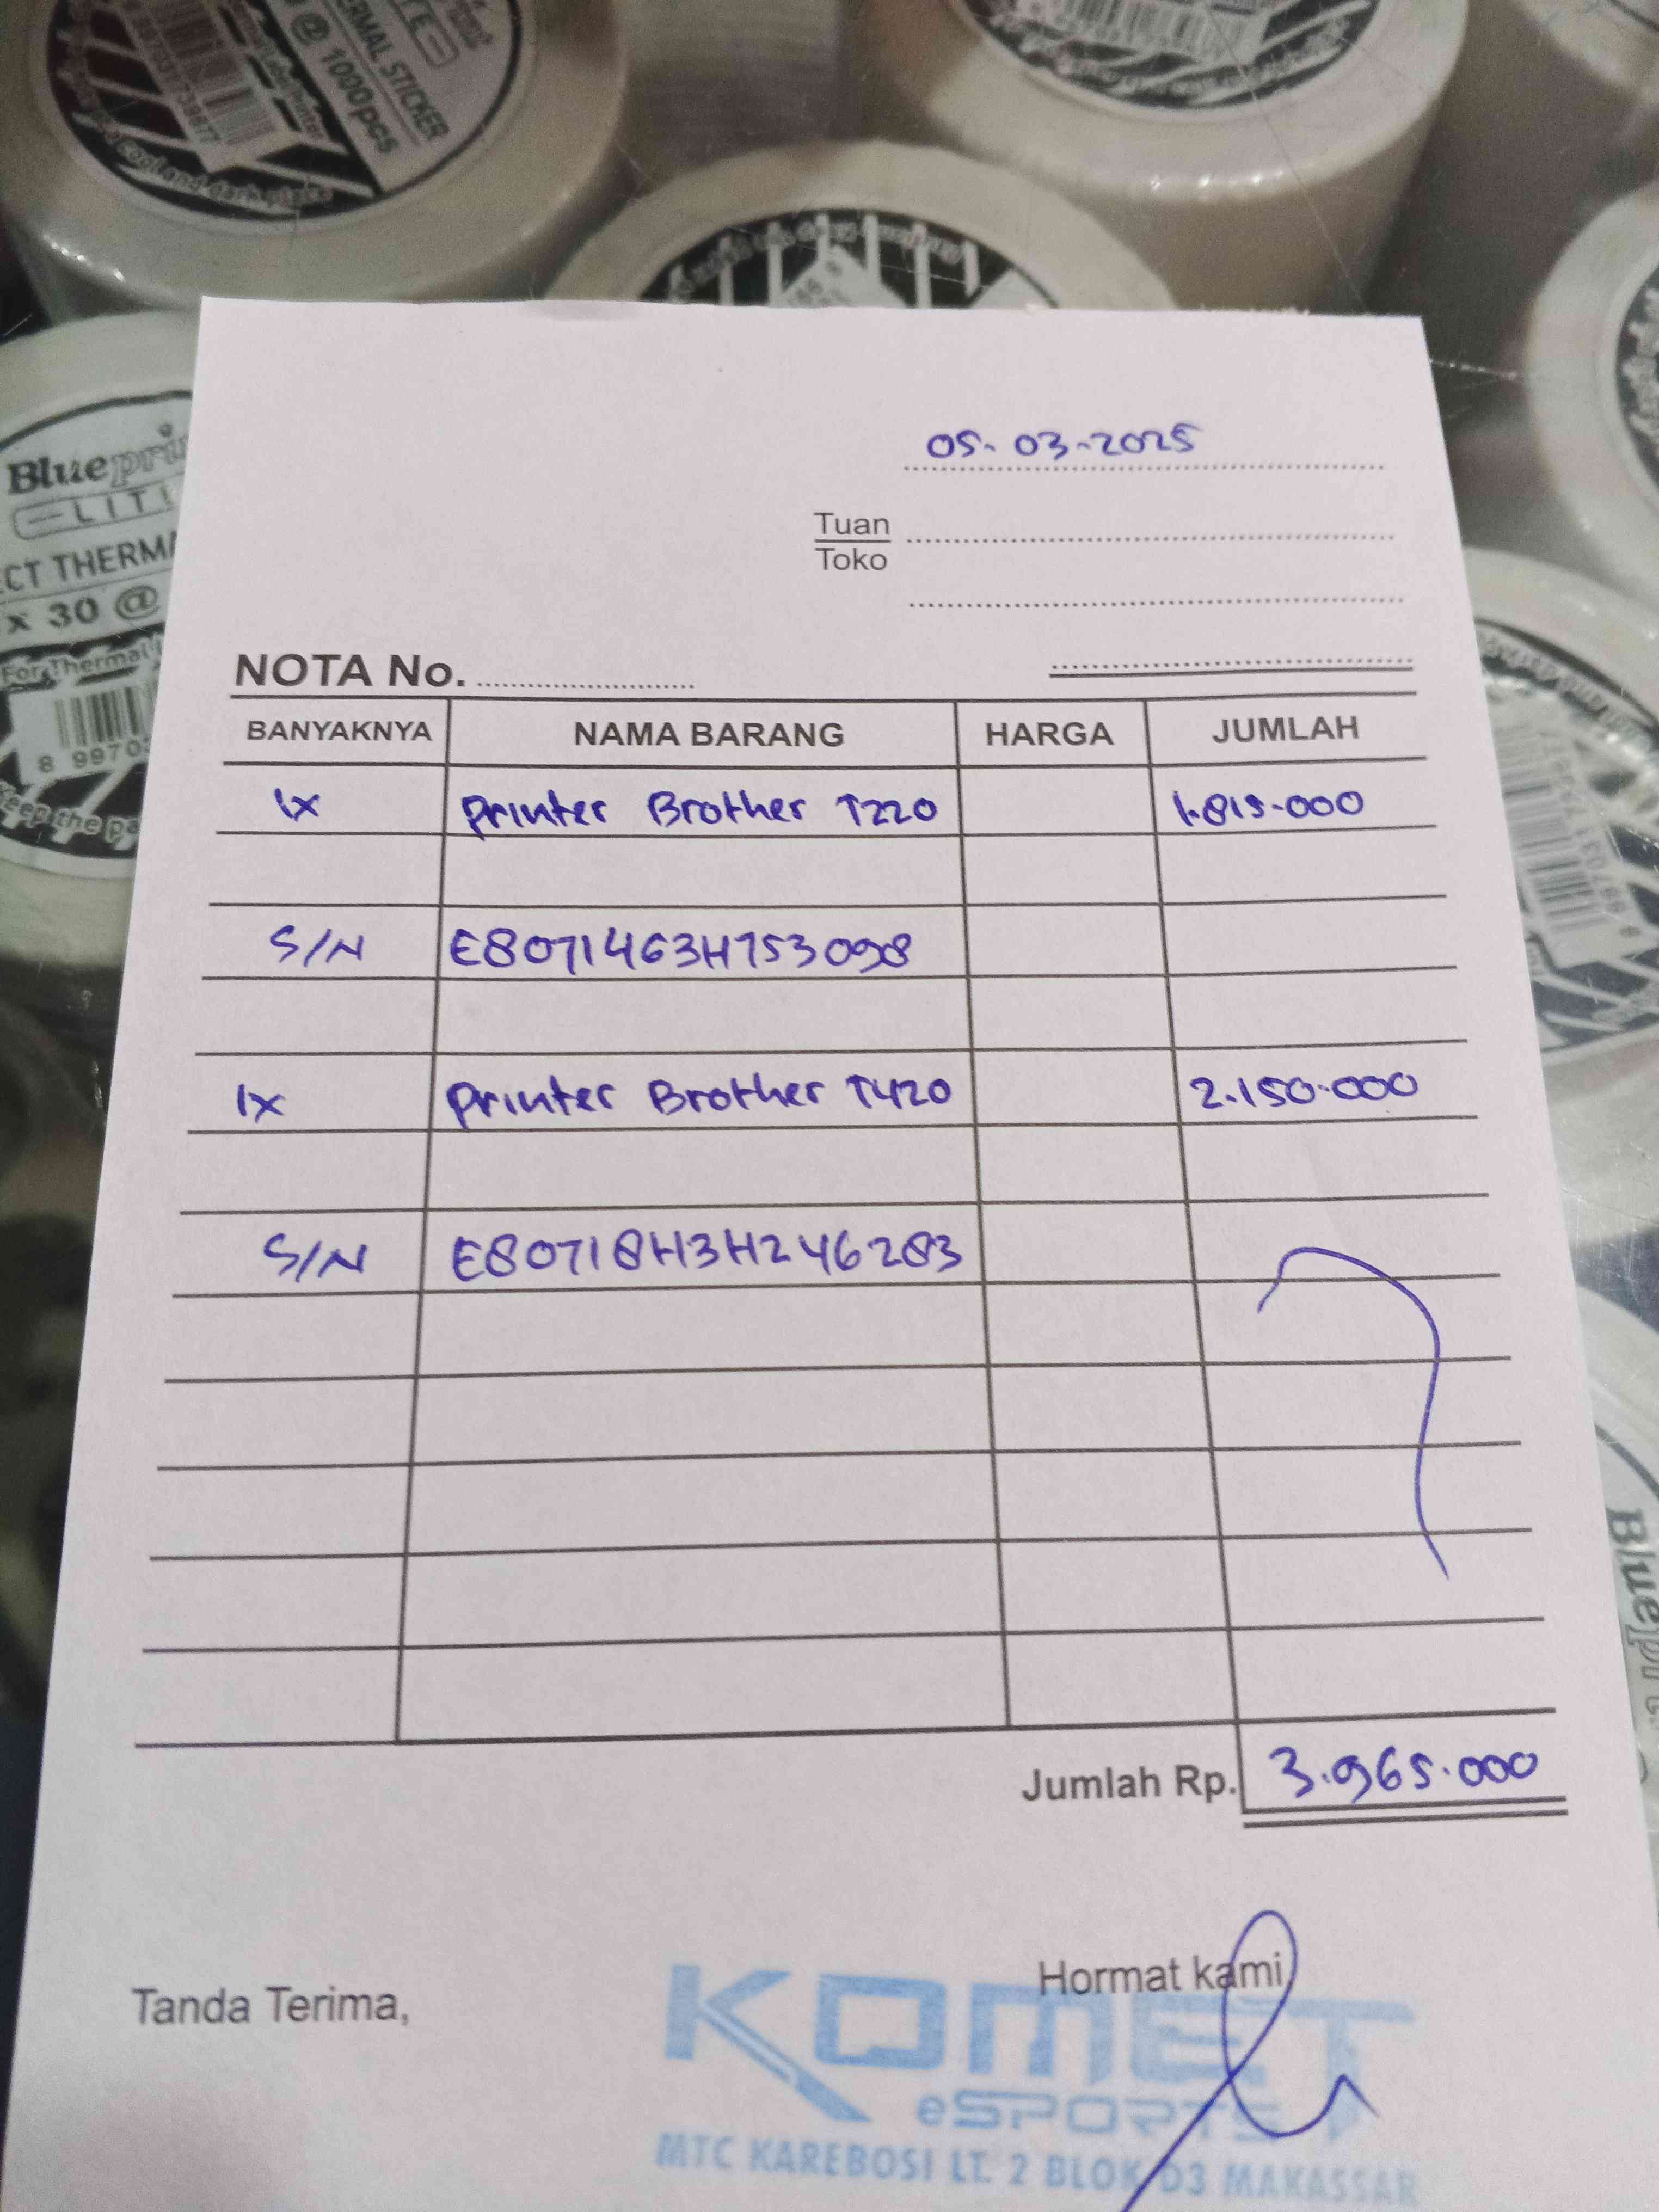 RMAL STICKER
@ 1000pcs
cool and dark place
Blueprin
ELIT
CT THERMA
x 30 @
For Thermal
8 9970
Keep the pa
05-03-2025
Tuan
Toko
NOTA No.
BANYAKNYA NAMA BARANG HARGA JUMLAH
1x Printer Brother T220 1.815.000
S/N E80714G3H753098
1x Printer Brother T420 2.150.000
S/N E80718H3H246283
Jumlah Rp. 3.965.000
Tanda Terima,
Hormat kami,
KOMET
eSPORTS
MTC KAREBOSI LT. 2 BLOK D3 MAKASSAR
Bluepr